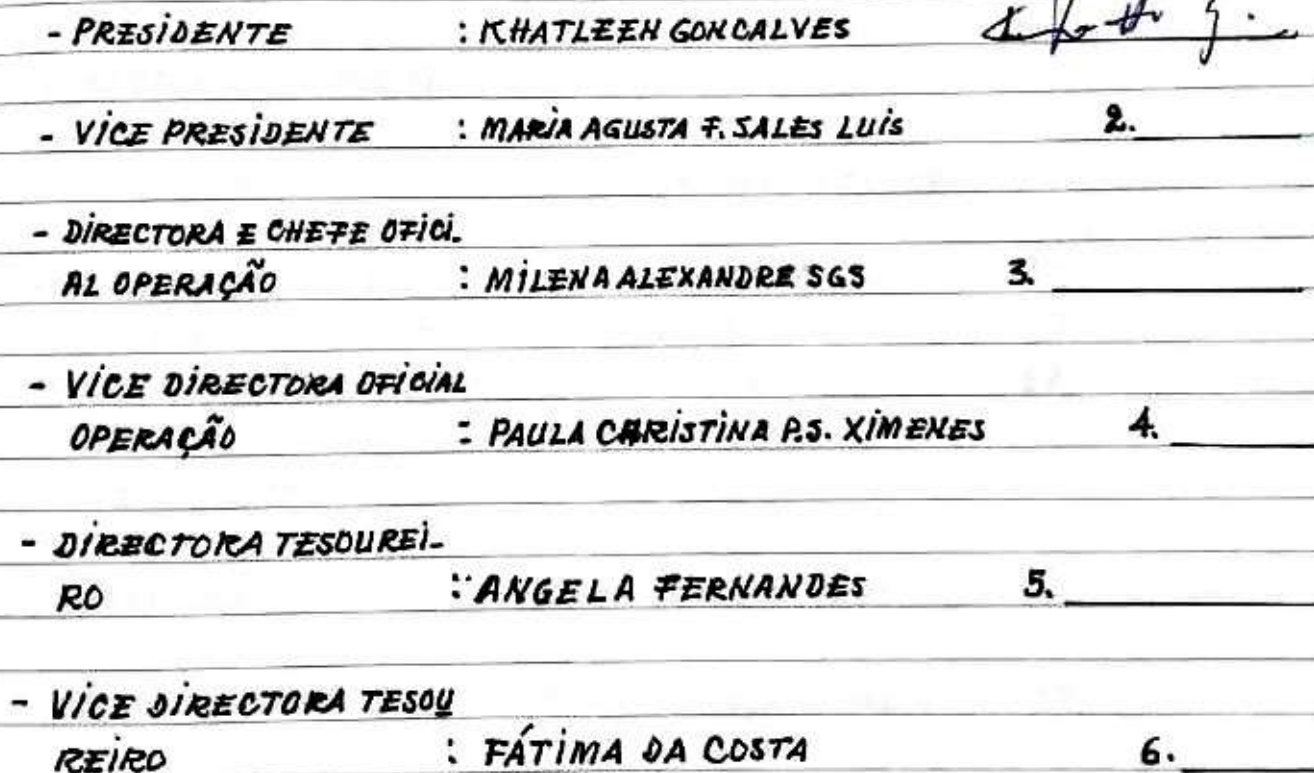 - PRESIDENTE : KHATLEEN GONCALVES
- VICE PRESIDENTE : MARIA AGUSTA F. SALES LUIS 2.
- DIRECTORA E CHEFE OFICI-
AL OPERAÇÃO : MILENA ALEXANDRE SGS 3.
- VICE DIRECTORA OFICIAL
OPERAÇÃO : PAULA CHRISTINA P.S. XIMENES 4.
- DIRECTORA TESOUREI-
RO : ANGELA FERNANDES 5.
- VICE DIRECTORA TESOU
REIRO : FÁTIMA DA COSTA 6.